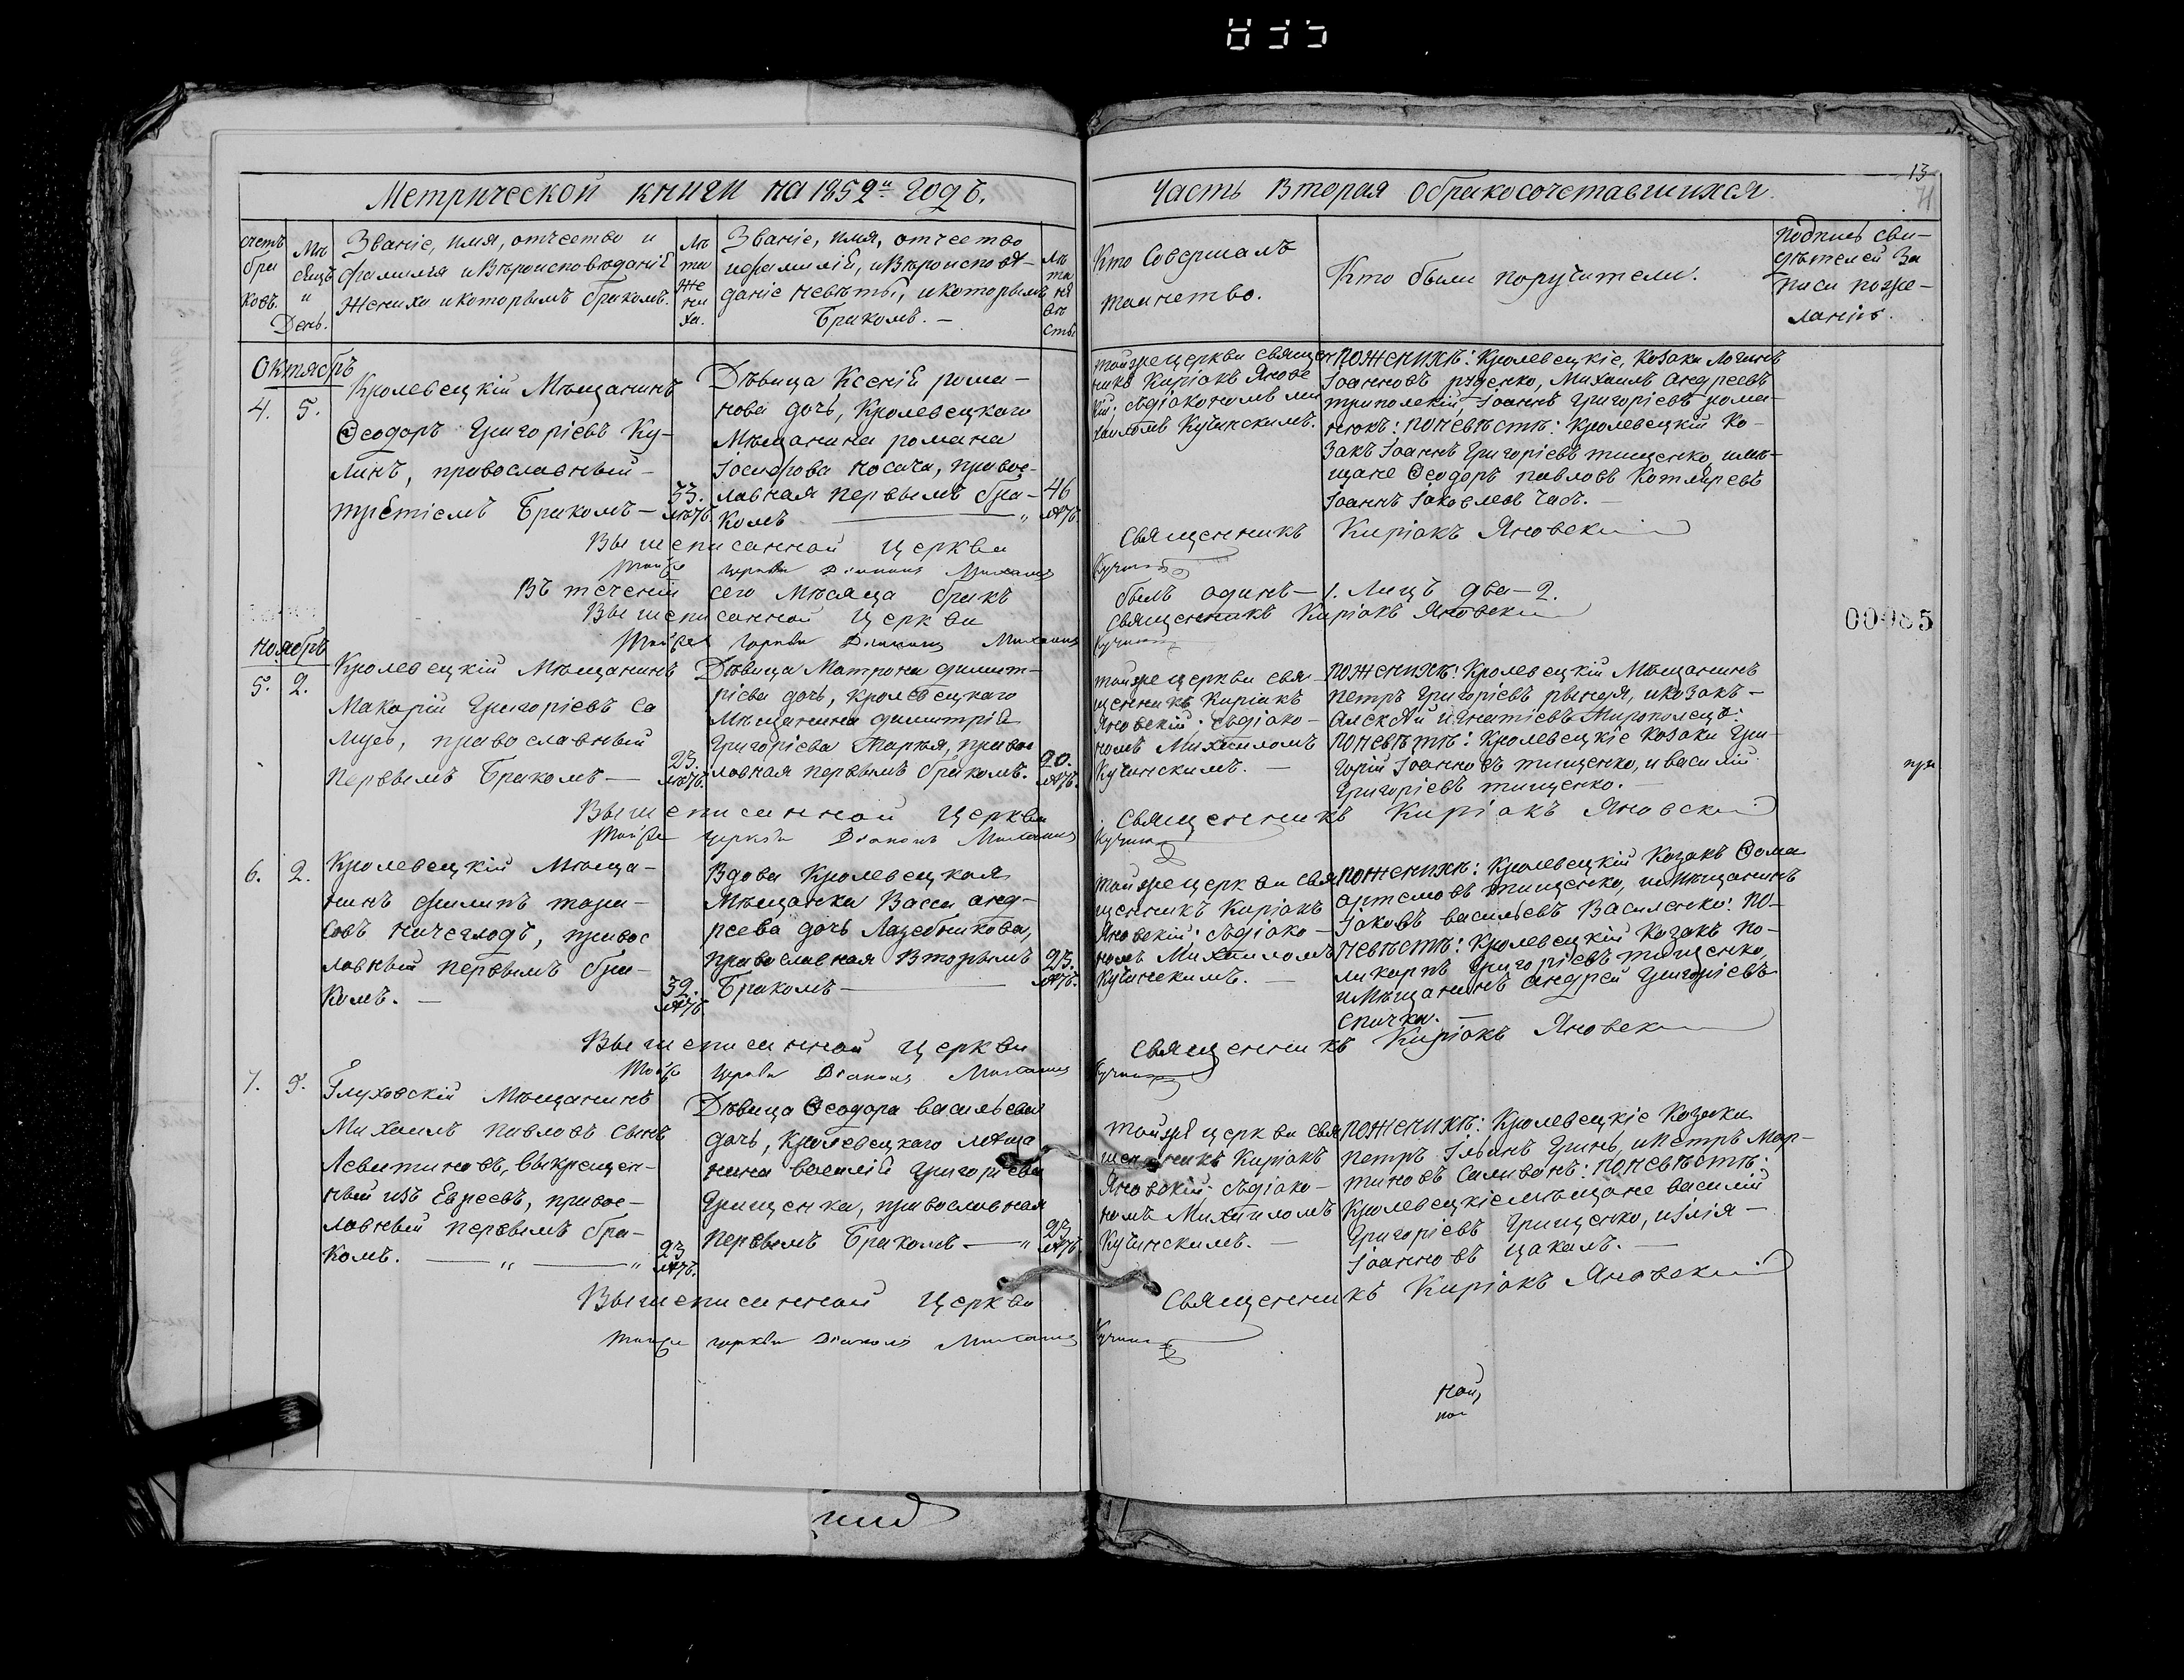 13
71
Метрической книги на 1852й годъ.
Часть вторая о бракосочетавшихся.
счетъ браковъ.
Мѣсяцъ и День.
Званіе, имя, отчество и
фамилія и Вѣроисповѣданіе
жениха и которымъ бракомъ.
Лѣта жениха.
Званіе, имя, отчество
и фамилій, и Вѣроисповѣ-
даніе невѣсты, и которымъ
Бракомъ. —
Лѣта невѣсты
Кто Совершалъ
таинство.
Кто были поручители.
Подпись сви-
дѣтелей За
писи по же-
ланію.
Октябрь
4. 5.
Кролевецкій Мѣщанинъ
Ѳеодоръ Григоріевъ Ку-
линъ, православный —
третіемъ Бракомъ —
33. лѣтъ.
Дѣвица Ксенія рома-
нова дочь, Кролевецкаго
Мѣщанина романа
Іосифова Носача, правос-
лавная первымъ бра-
комъ —
46 лѣтъ.
тойже церкви священ
никъ Киріакъ Яновс
кій; съ діакономъ ми
хаиломъ Кучинскимъ.
По женихѣ: Кролевецкіе, Козаки Логинъ
Іоанновъ руденко, Михаилъ Андреевъ
триполскій, Іоаннъ Григоріевъ рома-
нюкъ: по невѣстѣ: Кролевецкій Ко-
закъ Іоаннъ Григоріевъ тищенко, и мѣ-
щане Ѳеодоръ павловъ Котляревъ
Іоаннъ Іаковлевъ Час. —
Вышеписанной Церкви Священникъ Киріакъ Яновскій
Тойже церкви Діаконъ Михаилъ Кучин
Въ теченіи сего Мѣсяца бракъ былъ одинъ — 1. Лицъ два — 2.
Вышеписанной Церкви священникъ Киріакъ Яновскій
Тойже церкви Діаконъ Михаилъ Кучин
00085
Ноябрь
5. 2.
Кролевецкій Мѣщанинъ
Макарій Григоріевъ Са
православный
первымъ Бракомъ —
23. лѣтъ.
Дѣвица Матрона димит-
ріева дочь, Кролевецкаго
Мѣщанина димитрія
Григоріева правос
лавная первымъ бракомъ.
20. лѣтъ.
тойже церкви свя-
щенникъ Киріакъ
Яновскій: съ діако-
номъ Михаиломъ
Кучинскимъ. —
По женихѣ: Кролевецкій Мѣщанинъ
петръ Григоріевъ и козакъ —
Алексѣй игнатіевъ Мирополецъ:
По невѣстѣ: Кролевецкіе козаки Гри-
горій Іоанновъ тищенко, и василій
Григоріевъ тищенко. —
при
Вышеписанной Церкви Священникъ Киріакъ Яновскій
Тойже церкви Діаконъ Михаилъ Кучин
6. 2.
Кролевецкій Мѣща-
нинъ филипъ тара-
совъ Ничеглодъ, правос
лавный первымъ бра-
комъ. —
32. лѣтъ.
Вдова Кролевецкая
Мѣщанка Васса анд-
реева дочь Лазебникова,
православная Вторымъ
Бракомъ —
23. лѣтъ.
тойже церкви свя
щенникъ Киріакъ
Яновскій: съ діако-
номъ Михаиломъ
Кучинскимъ. —
По женихѣ: Кролевецкій Козакъ Ѳома
артемовъ тищенко, и Мѣщанинъ
Іаковъ васильевъ Василенко: по-
невѣстѣ: Кролевецкій Козакъ по-
ликарпъ Григоріевъ тищенко,
и Мѣщанинъ андрей Григоріевъ
Спичка. —
Вышеписанной Церкви Священникъ Киріакъ Яновскій
Тойже церкви Діаконъ Михаилъ Кучин
7. 9.
Глуховскій Мѣщанинъ
Михаилъ павловъ сынъ
Левитиновъ, выкрещен-
ный изъ Евреевъ, правос-
лавный первымъ бра-
комъ. — „ — „
23 лѣтъ.
Дѣвица Ѳеодора васильева
дочь, Кролевецкаго мѣща
нина василія Григоріева
Грищенка, православная
первымъ Бракомъ — „
23 лѣтъ
тойже церкви свя
щенникъ Киріакъ
Яновскій: съ діако-
номъ Михаиломъ
Кучинскимъ. —
По женихѣ: Кролевецкіе Козаки
петръ Гринь, и петръ Мар-
тиновъ Саливанъ: по невѣстѣ:
Кролевецкіе мѣщане василій
Григоріевъ Грищенко, и Ілія —
Іоанновъ Цакалъ. —
Вышеписанной Церкви Священникъ Киріакъ Яновскій
Тойже церкви Діаконъ Михаилъ Кучин